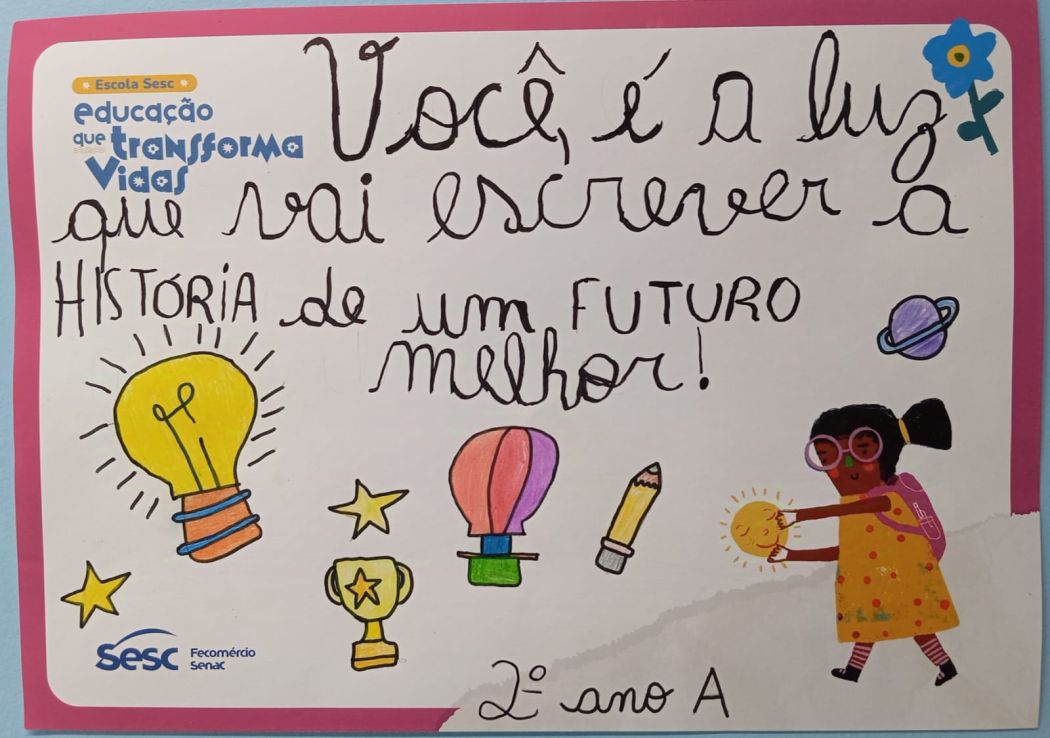 Escola Sesc
educação
que transforma
Vidas
Você, é a luz
que vai escrever a
HISTÓRIA de um FUTURO
melhor!
Sesc Fecomércio
Senac
2º ano A